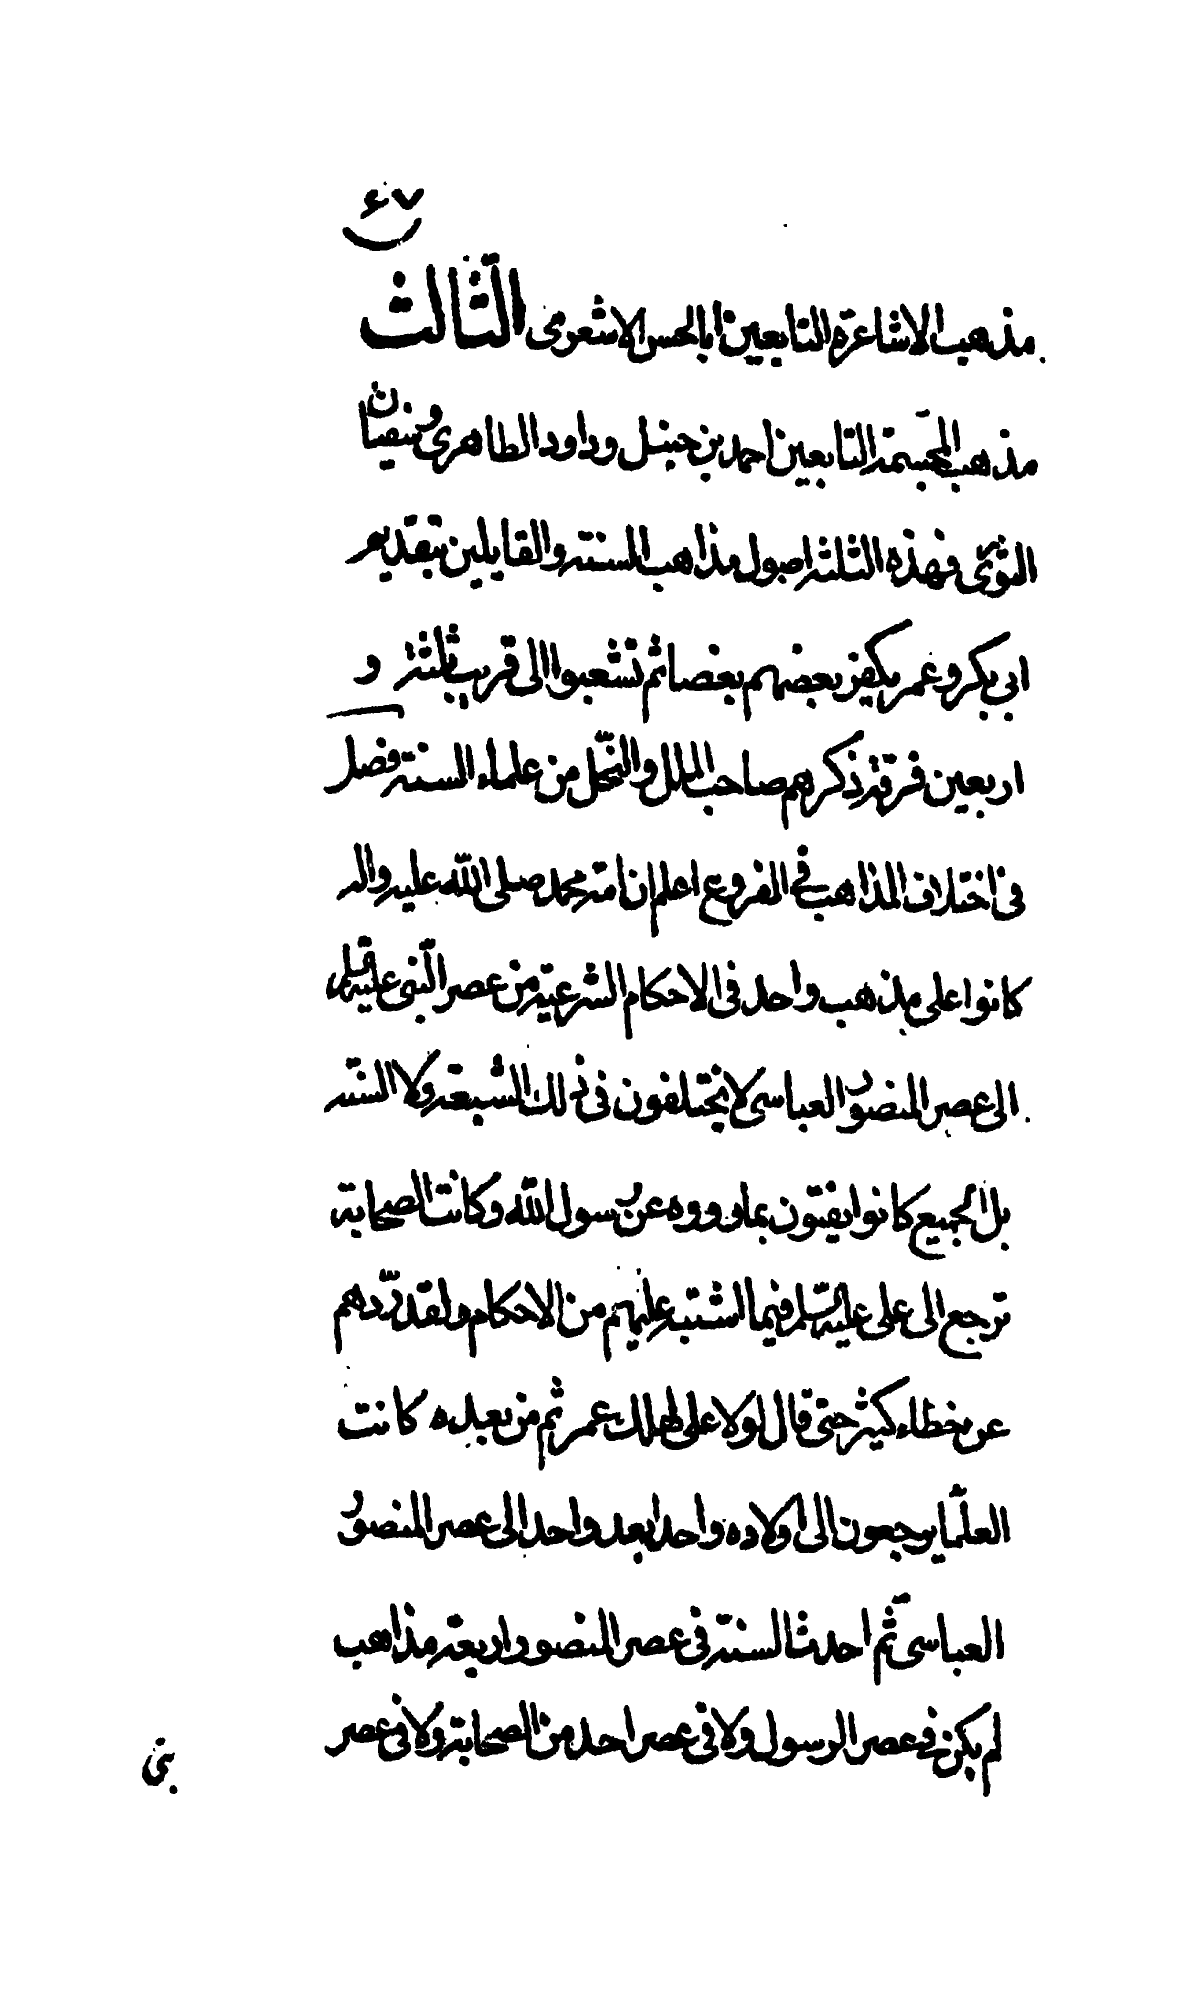 ٤٧
مذهب الاشاعرة التابعين ابا الحسن الاشعرى الثّالث
مذهب المجسّمة التابعين احمد بن حنبل وداود الطاهرى وسفيان
الثورى فهذه الثلثة اصول مذاهب السنة والقايلين بتقديم
ابى بكر وعمر يكفر بعضهم بعضا ثم تشعبوا الى قريب ثلثة و
اربعين فرقة ذكرهم صاحب الملل والنّحل من علماء السنة فصل
فى اختلاف المذاهب فى الفروع اعلم ان امة محمد صلى الله عليه واله
كانوا على مذهب واحد فى الاحكام الشرعية من عصر النّبى عليه
الى عصر المنصور العباسى لا يختلفون فى ذلك الشيعة ولا السنة
بل الجميع كانوا يفتون بما رووه عن رسول الله وكانت الصحابة
ترجع الى على عليه السّلم فيما اشتبه عليهم من الاحكام ولقد ردّدهم
عن خطاء كثير حتى قال لولا على لهلك عمر ثم من بعده كانت
العلّما يرجعون الى اولاده واحدا بعد واحد الى عصر المنصور
العباسى ثمّ احدث السنة فى عصر المنصور اربعة مذاهب
لم يكن فى عصر الرسول ولا فى عصر احد من الصحابة ولا فى عصر
بنى